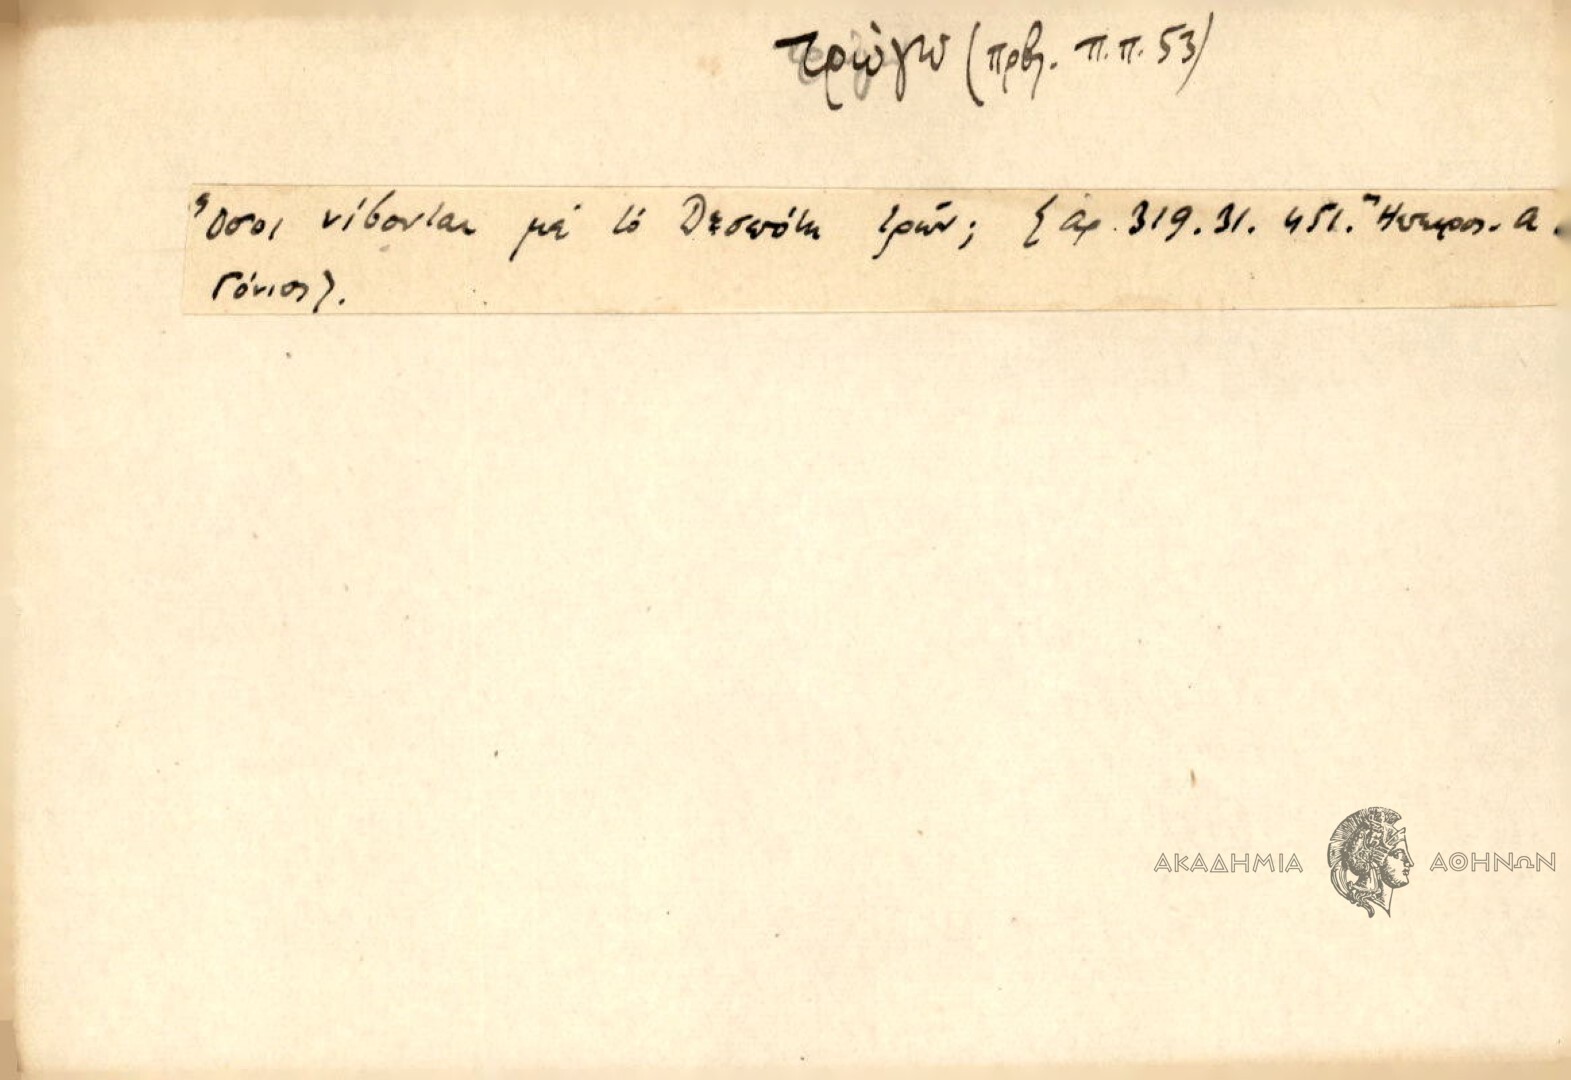 τρώγω (πρβλ. π.π. 53)
Ὅσοι νίβονται μὲ τὸ Δεσπότη τρῶν; {ἀρ. 319. 31. 451. Ἤπειρος. Α.
Γόνιος}.
ΑΚΑΔΗΜΙΑ ΑΘΗΝΩΝ